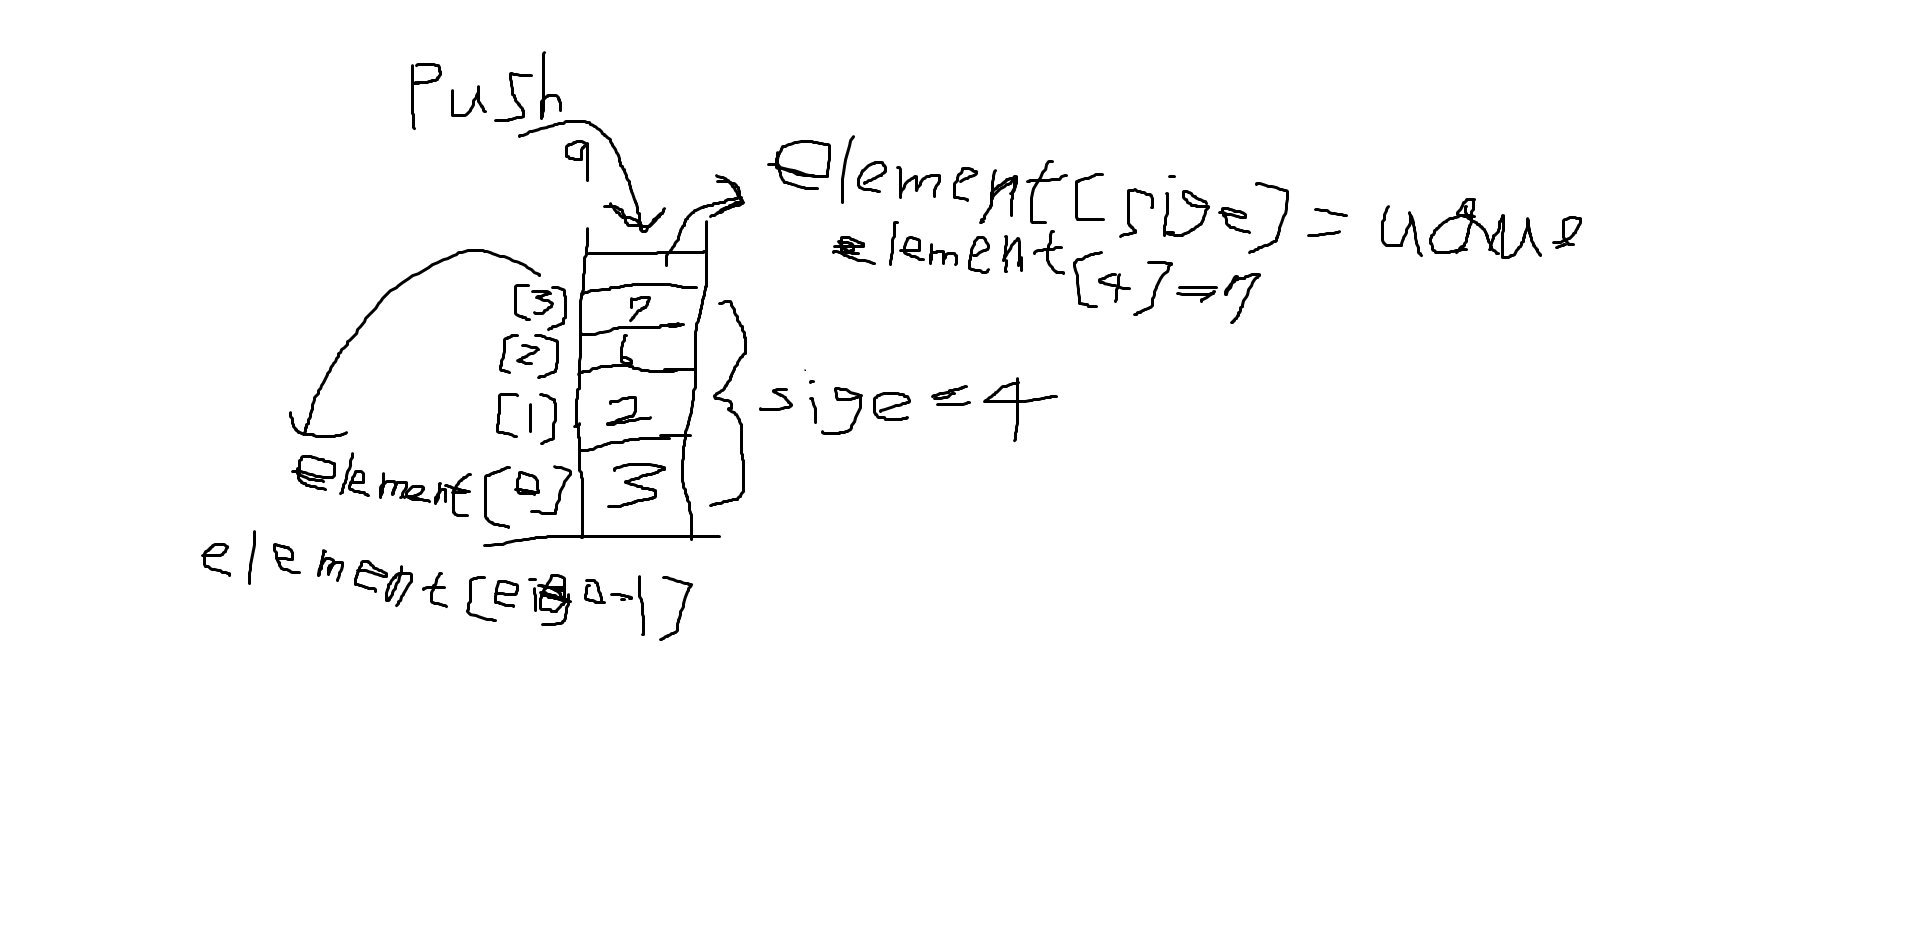 Push
9
element[size]=value
element[4]=7
[3] 7
[2] 6
[1] 2
size=4
element[0] 3
element[size-1]